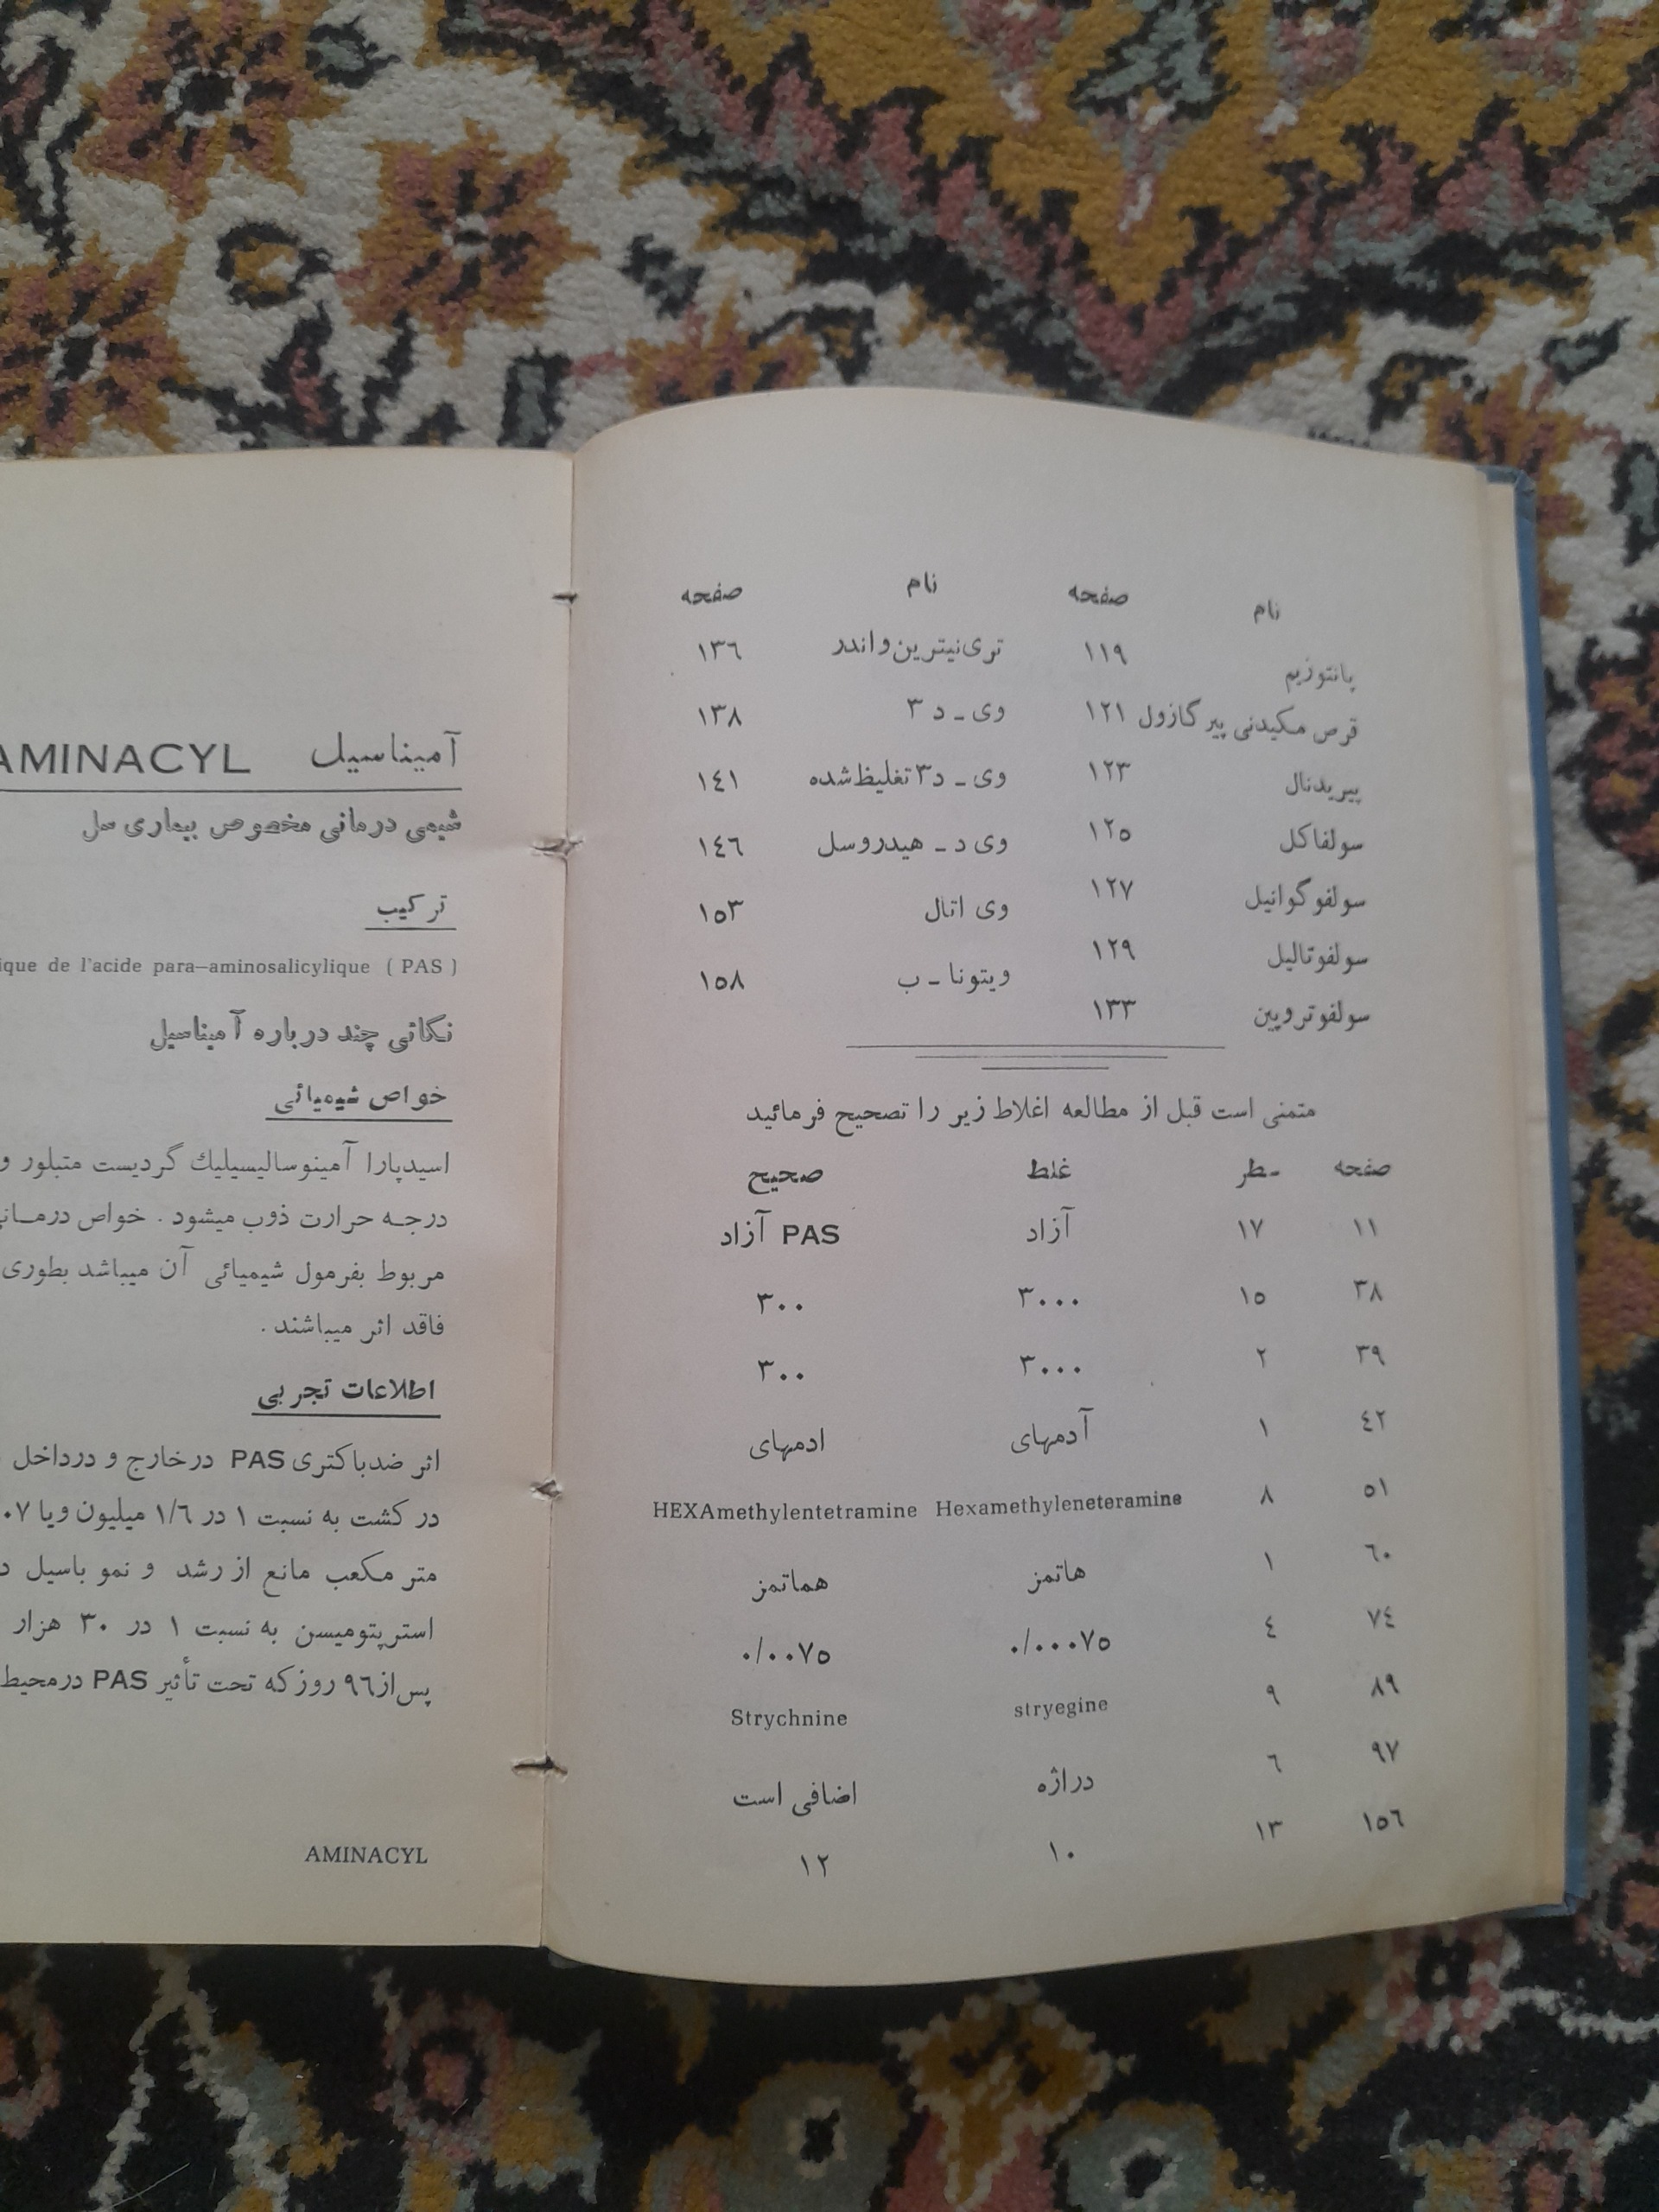 نام صفحه نام صفحه
پانتوزیم ۱۱۹ تری‌نیترین و اندر ۱۳٦
قرص مکیدنی پیرگازول ۱۲۱ وی ـ د ۳ ۱۳۸
پیریدنال ۱۲۳ وی ـ د۳ تغلیظ شده ۱٤۱
سولفاکل ۱۲٥ وی د ـ هیدروسل ۱٤٦
سولفوگوانیل ۱۲۷ وی اتال ۱٥۳
سولفوتالیل ۱۲۹ ویتونا ـ ب ۱٥۸
سولفوتروپین ۱۳۳
متمنی است قبل از مطالعه اغلاط زیر را تصحیح فرمائید
صفحه سطر غلط صحیح
۱۱ ۱۷ آزاد PAS آزاد
۳۸ ۱٥ ۳۰۰۰ ۳۰۰
۳۹ ۲ ۳۰۰۰ ۳۰۰
٤۲ ۱ آدمهای ادمهای
٥۱ ۸ Hexamethyleneteramine HEXAmethylentetramine
٦۰ ۱ هاتمز هماتمز
۷٤ ٤ ۰/۰۰۰۷٥ ۰/۰۰۷٥
۸۹ ۹ stryegine Strychnine
۹۷ ٦ دراژه اضافی است
۱٥٦ ۱۳ ۱۰ ۱۲
آمیناسیل AMINACYL
شیمی درمانی مخصوص بیماری سل
ترکیب
ique de l'acide para—aminosalicylique ( PAS )
نکاتی چند درباره آمیناسیل
خواص شیمیائی
اسیدپارا آمینوسالیسیلیك گردیست متبلور و
درجـه حرارت ذوب میشود . خواص درمـانی
مربوط بفرمول شیمیائی آن میباشد بطوری
فاقد اثر میباشند .
اطلاعات تجربی
اثر ضدباکتری PAS درخارج و درداخل
در کشت به نسبت ۱ در ۱/٦ میلیون ویا ۰۷
متر مکعب مانع از رشد و نمو باسیل
استرپتومیسن به نسبت ۱ در ۳۰ هزار
پس از ۹٦ روز که تحت تأثیر PAS درمحیط
AMINACYL